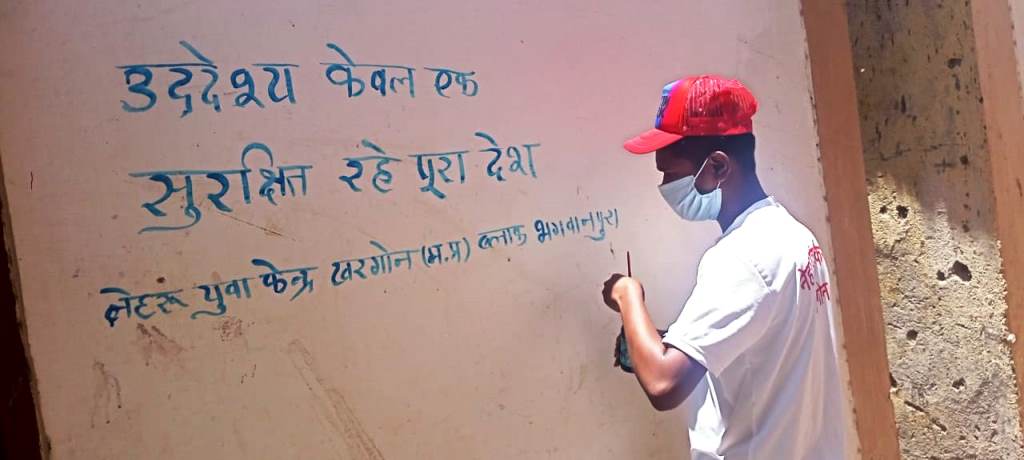 उद्देश्य केवल एक
सुरक्षित रहे पूरा देश
नेहरू युवा केन्द्र खरगोन (म.प्र) ब्लाक भगवानपुरा